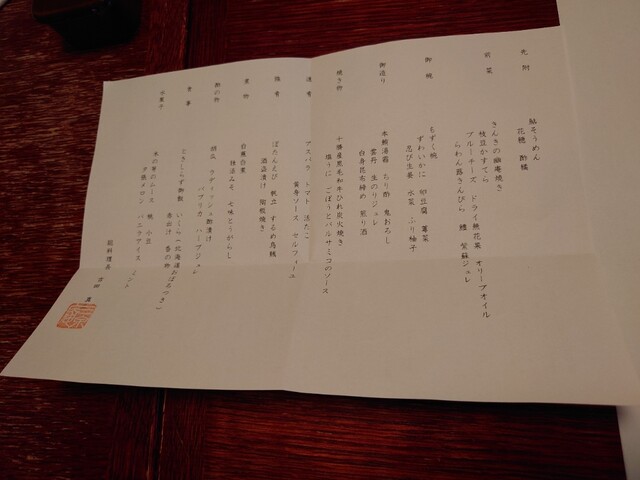 先附
鮎そうめん
花穂 酢橘
前菜
きんきの幽庵焼き
枝豆かすてら
ブルーチーズ ドライ無花果 オリーブオイル
らわん蕗きんぴら 鱧 紫蘇ジュレ
御椀
もずく椀
ずわいかに 卵豆腐 蓴菜
忍び生姜 水菜 ふり柚子
御造り
本鮪湯霜 ちり酢 鬼おろし
雲丹 生のりジュレ
白身昆布締め 煎り酒
焼き物
十勝産黒毛和牛ひれ炭火焼き
塩うに ごぼうとバルサミコのソース
アスパラ トマト 活たこ
黄身ソース セルフィーユ
強肴
ぼたんえび 帆立 するめ烏賊
酒盗漬け 陶板焼き
煮物
白無合煮
七味とうがらし
酢の物
ラディッシュ酢漬け
パプリカ ハーブジュレ
食事
ときしらず御飯 いくら(北海道おぼろづき)
赤出汁 香の物
水菓子
夕張メロン 桃 小豆
バニラアイス ミント